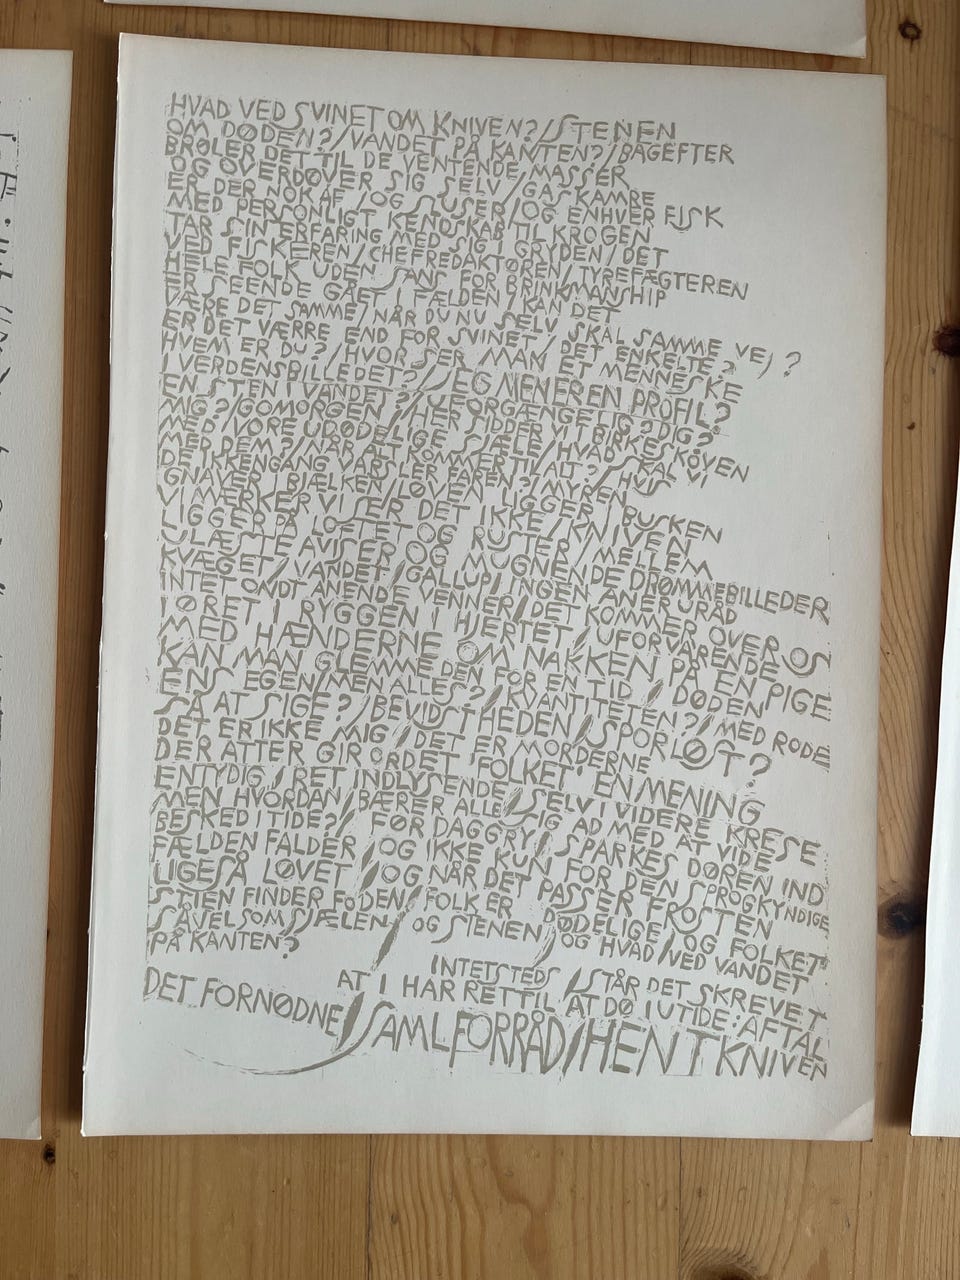 HVAD VED SVINET OM KNIVEN?/STENEN
OM DØDEN?/VANDET PÅ KANTEN?/BAGEFTER
BRØLER DET TIL DE VENTENDE MASSER
OG OVERDØVER SIG SELV/GASKAMRE
ER DER NOK AF/OG SUSER/OG ENHVER FISK
MED PERSONLIGT KENDSKAB TIL KROGEN
TAR SIN ERFARING MED SIG I GRYDEN/DET
VED FISKEREN/CHEFREDAKTØREN/TYREFÆGTEREN
HELE FOLK UDEN SANS FOR BRINKMANSHIP
ER SEENDE GÅET I FÆLDEN/KAN DET
VÆRE DET SAMME/NÅR DU NU SELV SKAL SAMME VEJ?
ER DET VÆRRE END FOR SVINET/DET ENKELTE?
HVEM ER DU?/HVOR SER MAN ET MENNESKE
I VERDENSBILLEDET?/JEG MENER EN PROFIL?
EN STEN I VANDET?/UFORGÆNGELIG?DIG?
MIG?/GOMORGEN!/HER SIDDER VI I BIRKESKOVEN
MED VORE UDØDELIGE SJÆLE/HVAD SKAL VI
MED DEM?/NÅR ALT KOMMER TIL ALT?/HVIS VI
DE IKKENGANG VARSLER FAREN?/MYREN
GNAVER I BJÆLKEN/LØVEN LIGGER I BUSKEN
VI MÆRKER VI SER DET IKKE/KNIVEN
LIGGER PÅ LOFTET OG RUSTER/MELLEM
ULÆSTE AVISER OG MUGNENDE DRØMMEBILLEDER
KVÆGET/VANDET/GALLUP/INGEN ANER URÅD
INTET ONDT ANENDE VENNER/DET KOMMER OVER OS
I ØRET I RYGGEN I HJERTET/UFORVARENDE
MED HÆNDERNE OM NAKKEN PÅ EN PIGE
KAN MAN GLEMME DEN FOR EN TID/DØDEN
ENS EGEN/MEN ALLES?/KVANTITETEN?/MED RODE
SÅ AT SIGE?/BEVIDSTHEDEN/SPORLØST?
DET ER IKKE MIG/DET ER MORDERNE
DER ATTER GIR ORDET 'FOLKET' EN MENING
ENTYDIG/RET INDLYSENDE/SELV I VIDERE KRESE
MEN HVORDAN BÆRER ALLE SIG AD MED AT VIDE
BESKED I TIDE?/FØR DAGGRY/SPARKES DØREN IND
FÆLDEN FALDER/OG IKKE KUN FOR DEN SPROGKYNDIGE
LIGESÅ LØVET/OG NÅR DET PASSER FROSTEN
STIEN FINDER FODEN/FOLK ER DØDELIGE/OG FOLKET
SÅVELSOM SJÆLEN/OG STENEN/OG HVAD VED VANDET
PÅ KANTEN?
INTETSTEDS/STÅR DET SKREVET
AT I HAR RET TIL AT DØ I UTIDE: AFTAL
DET FORNØDNE/SAML FORRÅD/HENT KNIVEN